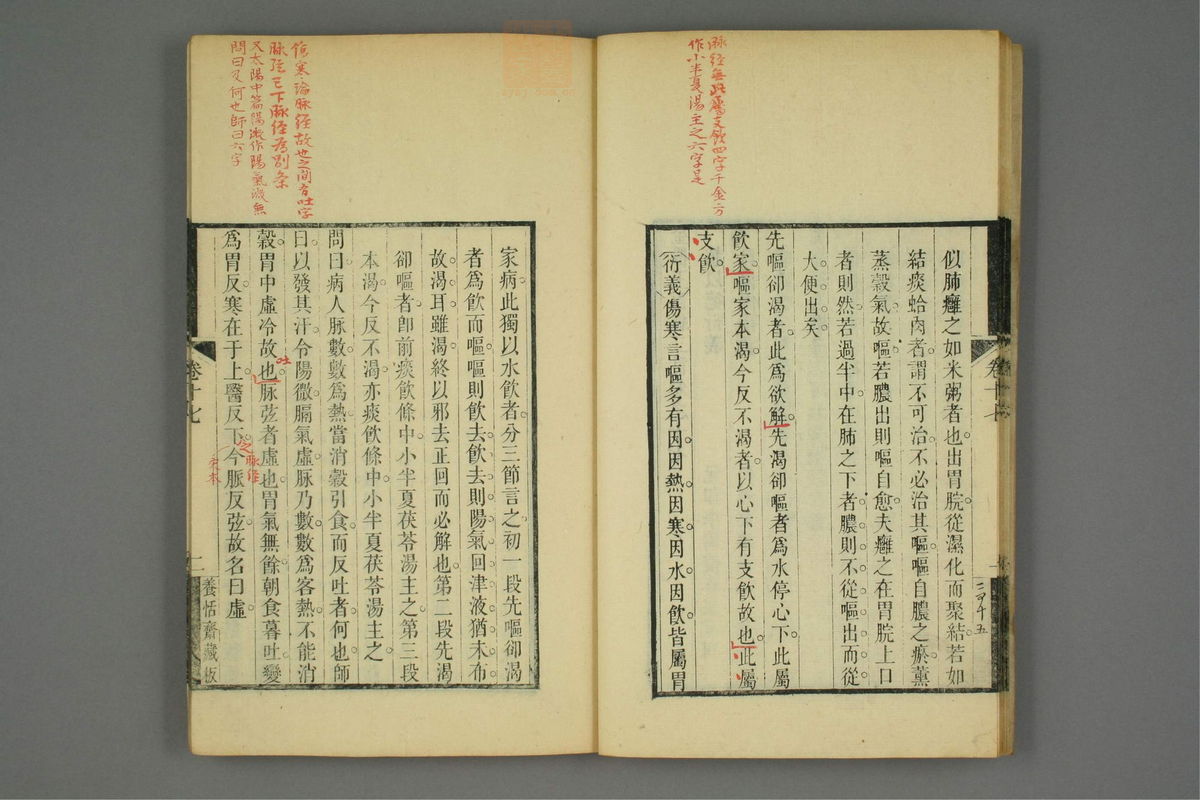 脉經無此屬支飲四字千金方
作小半夏湯主之六字是
似肺癰之如米粥者也出胃脘從濕化而聚結若如
結痰蛤肉者謂不可治不必治其嘔嘔自膿之瘀薰
蒸穀氣故嘔若膿出則嘔自愈夫癰之在胃脘上口
者則然若過半中在肺之下者膿則不從嘔出而從
大便出矣
先嘔卻渴者此爲欲解先渴卻嘔者爲水停心下此屬
飲家嘔家本渴今反不渴者以心下有支飲故也此屬
支飲
衍義傷寒言嘔多有因因熱因寒因水因飲皆屬胃
卷十七
卷十七
二
養恬齋藏板
傷寒論脉經故也之間有吐字
脉弦已下脉經爲別条
又太陽中篇陽微作陽氣微無
問曰及何也師曰六字
家病此獨以水飲者分三節言之初一段先嘔卻渴
者爲飲而嘔嘔則飲去飲去則陽氣回津液猶未布
故渴耳雖渴終以邪去正回而必解也第二段先渴
卻嘔者卽前痰飲條中小半夏茯苓湯主之第三段
本渴今反不渴亦痰飲條中小半夏茯苓湯主之
問曰病人脉數數爲熱當消穀引食而反吐者何也師
曰以發其汗令陽微膈氣虛脉乃數數爲客熱不能消
穀胃中虛冷故也脉弦者虛也胃氣無餘朝食暮吐變
吐
爲胃反寒在于上醫反下今脈反弦故名曰虛
之脉經